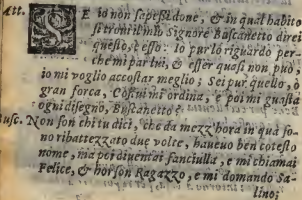 Att. SE io non sapeßi doue, & in qual habito
si troui il mio Signore Buscanetto direi
questo, è esso: Io pur lo riguardo per-
che mi par lui, & esser quasi non può;
io mi voglio accostar meglio; Sei pur quello, ò
gran forca, Costui mi ordina, e poi mi guasta
ogni disegno, Buscanetto è
Busc. Non son chi tu dici, che da mezz'hora in quà so-
no ribattezzato due volte, haueuo ben cotesto
nome, ma poi diuentai fanciulla, e mi chiamai
Felice, & hor son Ragazzo, e mi domando Sa-
lino;